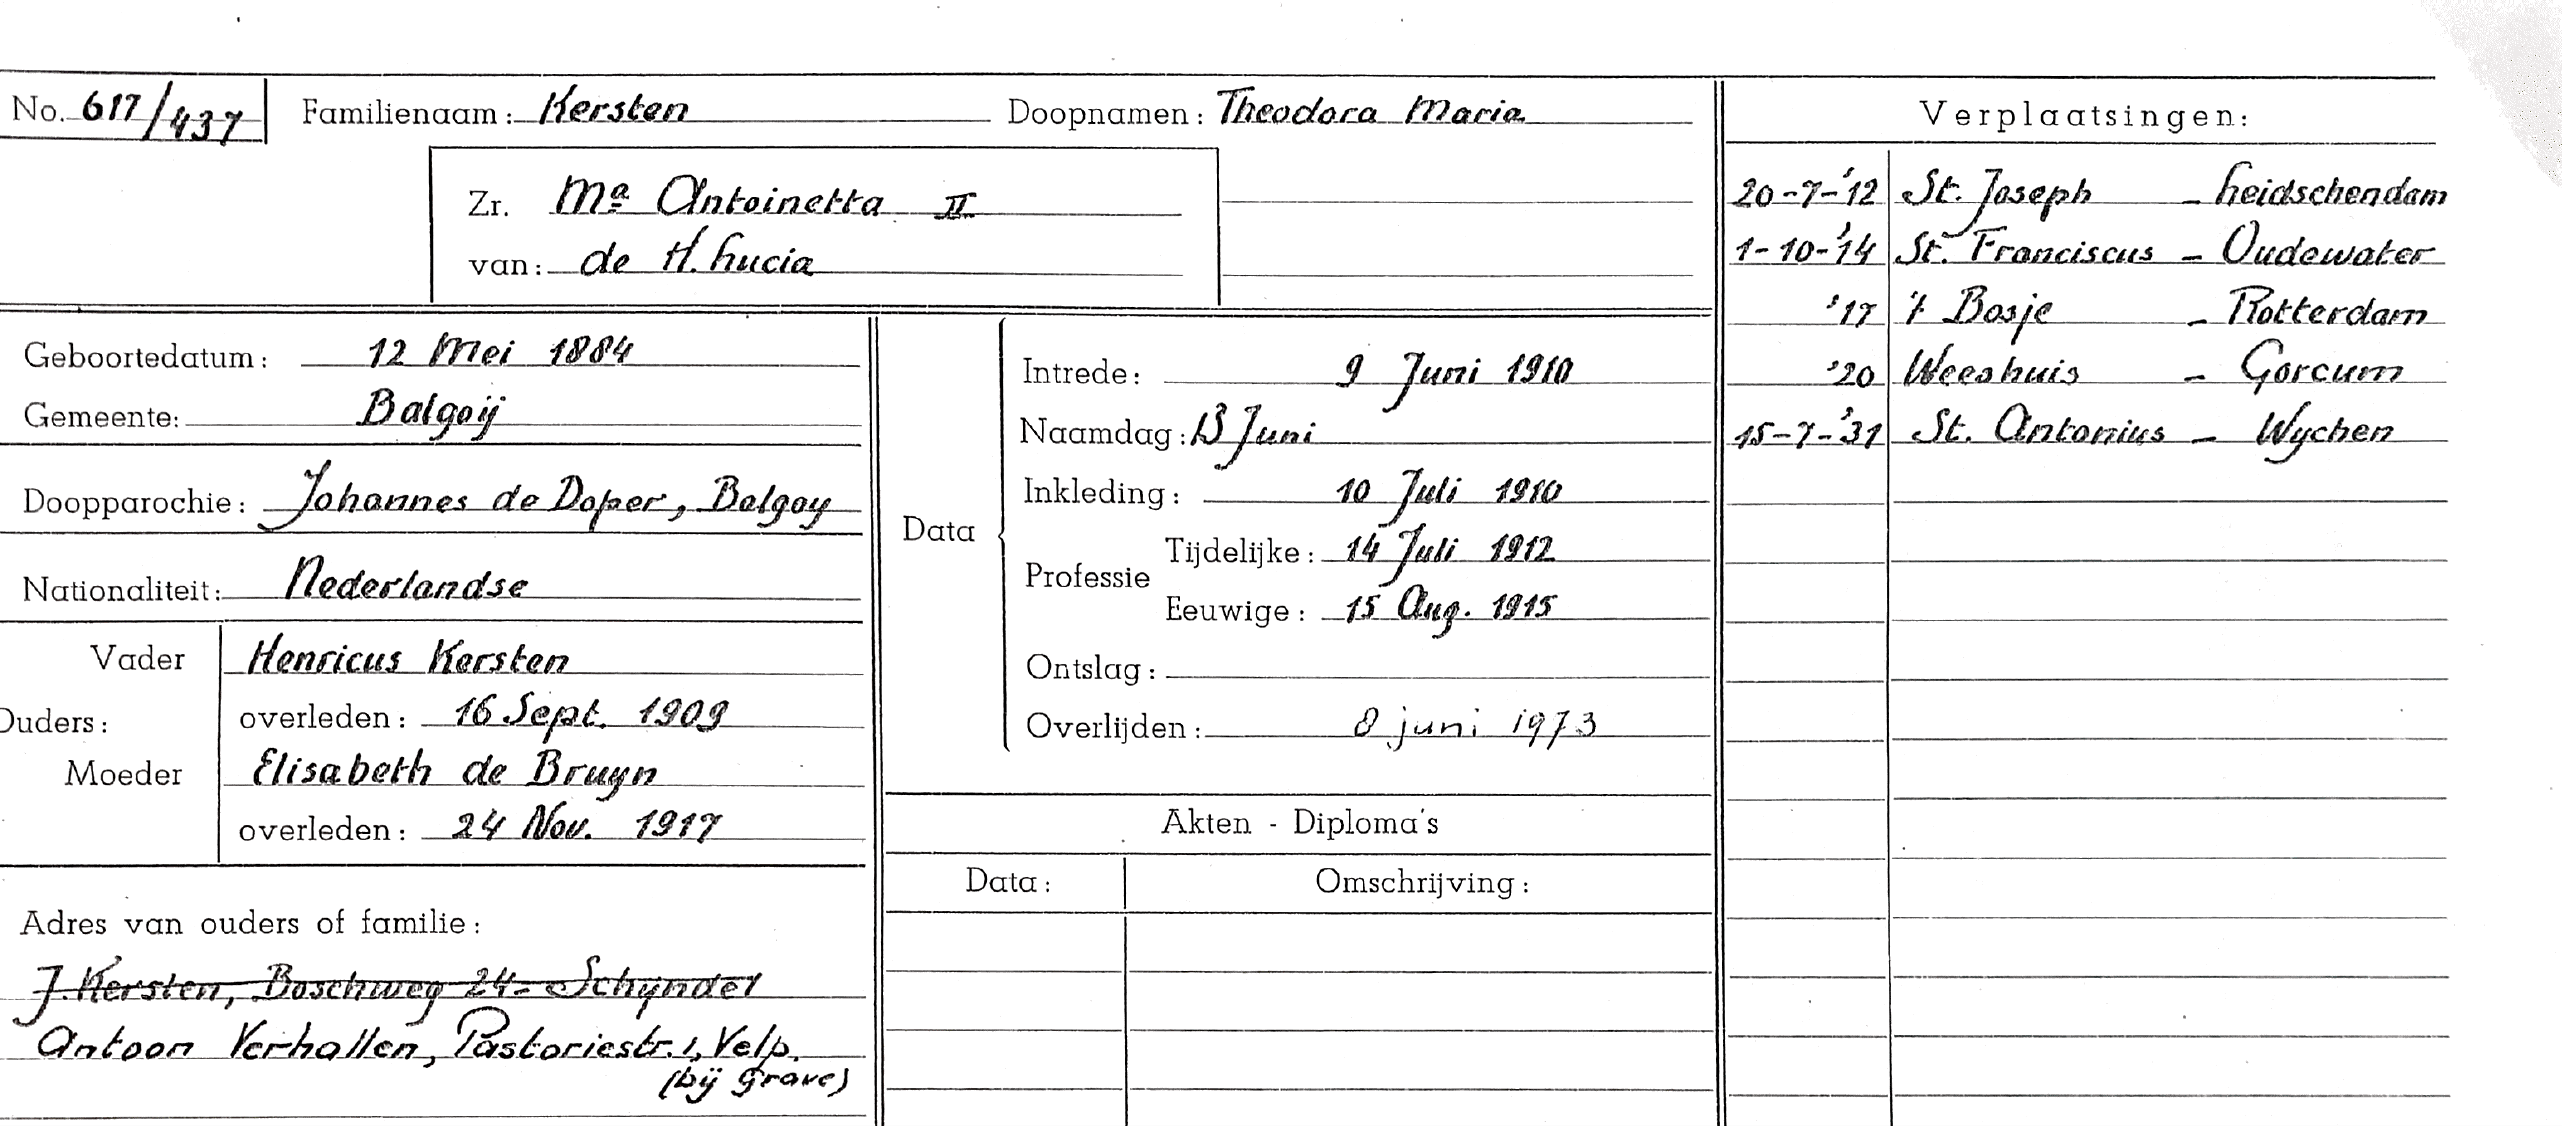 No. 617/437 Familienaam: Kersten Doopnamen: Theodora Maria
Zr. Ma Antoinetta II
van: de H. Lucia
Geboortedatum: 12 Mei 1884
Gemeente: Balgoij
Doopparochie: Johannes de Doper, Balgoy
Nationaliteit: Nederlandse
Ouders:
Vader Henricus Kersten
overleden: 16 Sept. 1909
Moeder Elisabeth de Bruyn
overleden: 24 Nov. 1917
Adres van ouders of familie:
J. Kersten, Boschweg 24 - Schyndel
Antoon Verhallen, Pastoriestr. 1, Velp.
(bij Grave)
Data
Intrede: 9 Juni 1910
Naamdag: 13 Juni
Inkleding: 10 Juli 1910
Professie
Tijdelijke: 14 Juli 1912
Eeuwige: 15 Aug. 1915
Ontslag:
Overlijden: 8 juni 1973
Akten - Diploma's
Data: Omschrijving:
Verplaatsingen:
20-7-'12 St. Joseph - Leidschendam
1-10-'14 St. Franciscus - Oudewater
'17 't Bosje - Rotterdam
'20 Weeshuis - Gorcum
15-7-'31 St. Antonius - Wychen